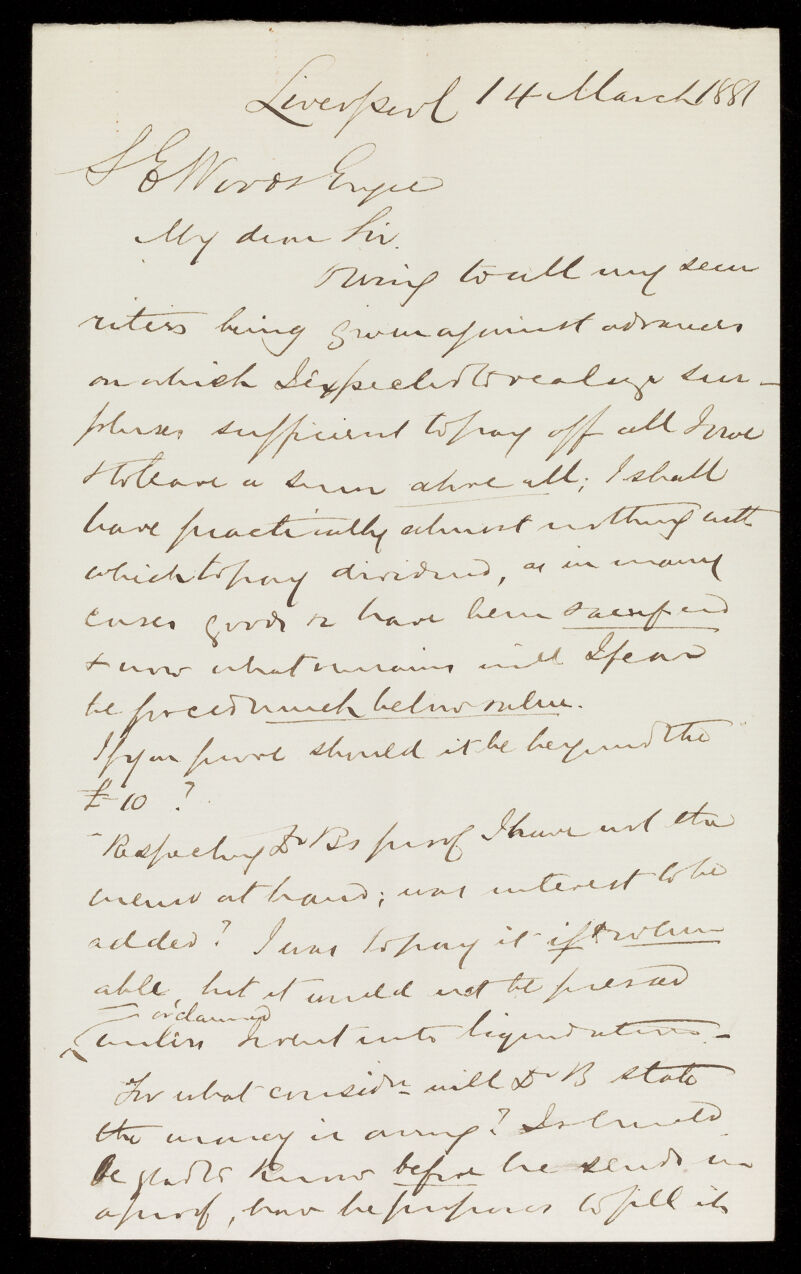 Liverpool 14 March 1881
S E Woods Esqre
My dear Sir.
Owing to all my secu
rities being given against advances
on which I expected to realize sur-
pluses sufficient to pay off all I owe
& to leave a sum above all; I shall
have practically almost nothing with
which to pay dividend, as in many
cases goods &c have been sacrificed
& now what remains will I fear
be forced much below value.
If you prove should it be beyond the
£10 ?
Respecting Dr Bs proof I have not the
memo at hand; was interest to be
added? I was to pay it if & when
able, but it would not be pressed
or claimed
unless I went into liquidation. -
For what considn will Dr B state
the money is owing? I should
be glad to know before he sends in
a proof, how he proposes to fill it